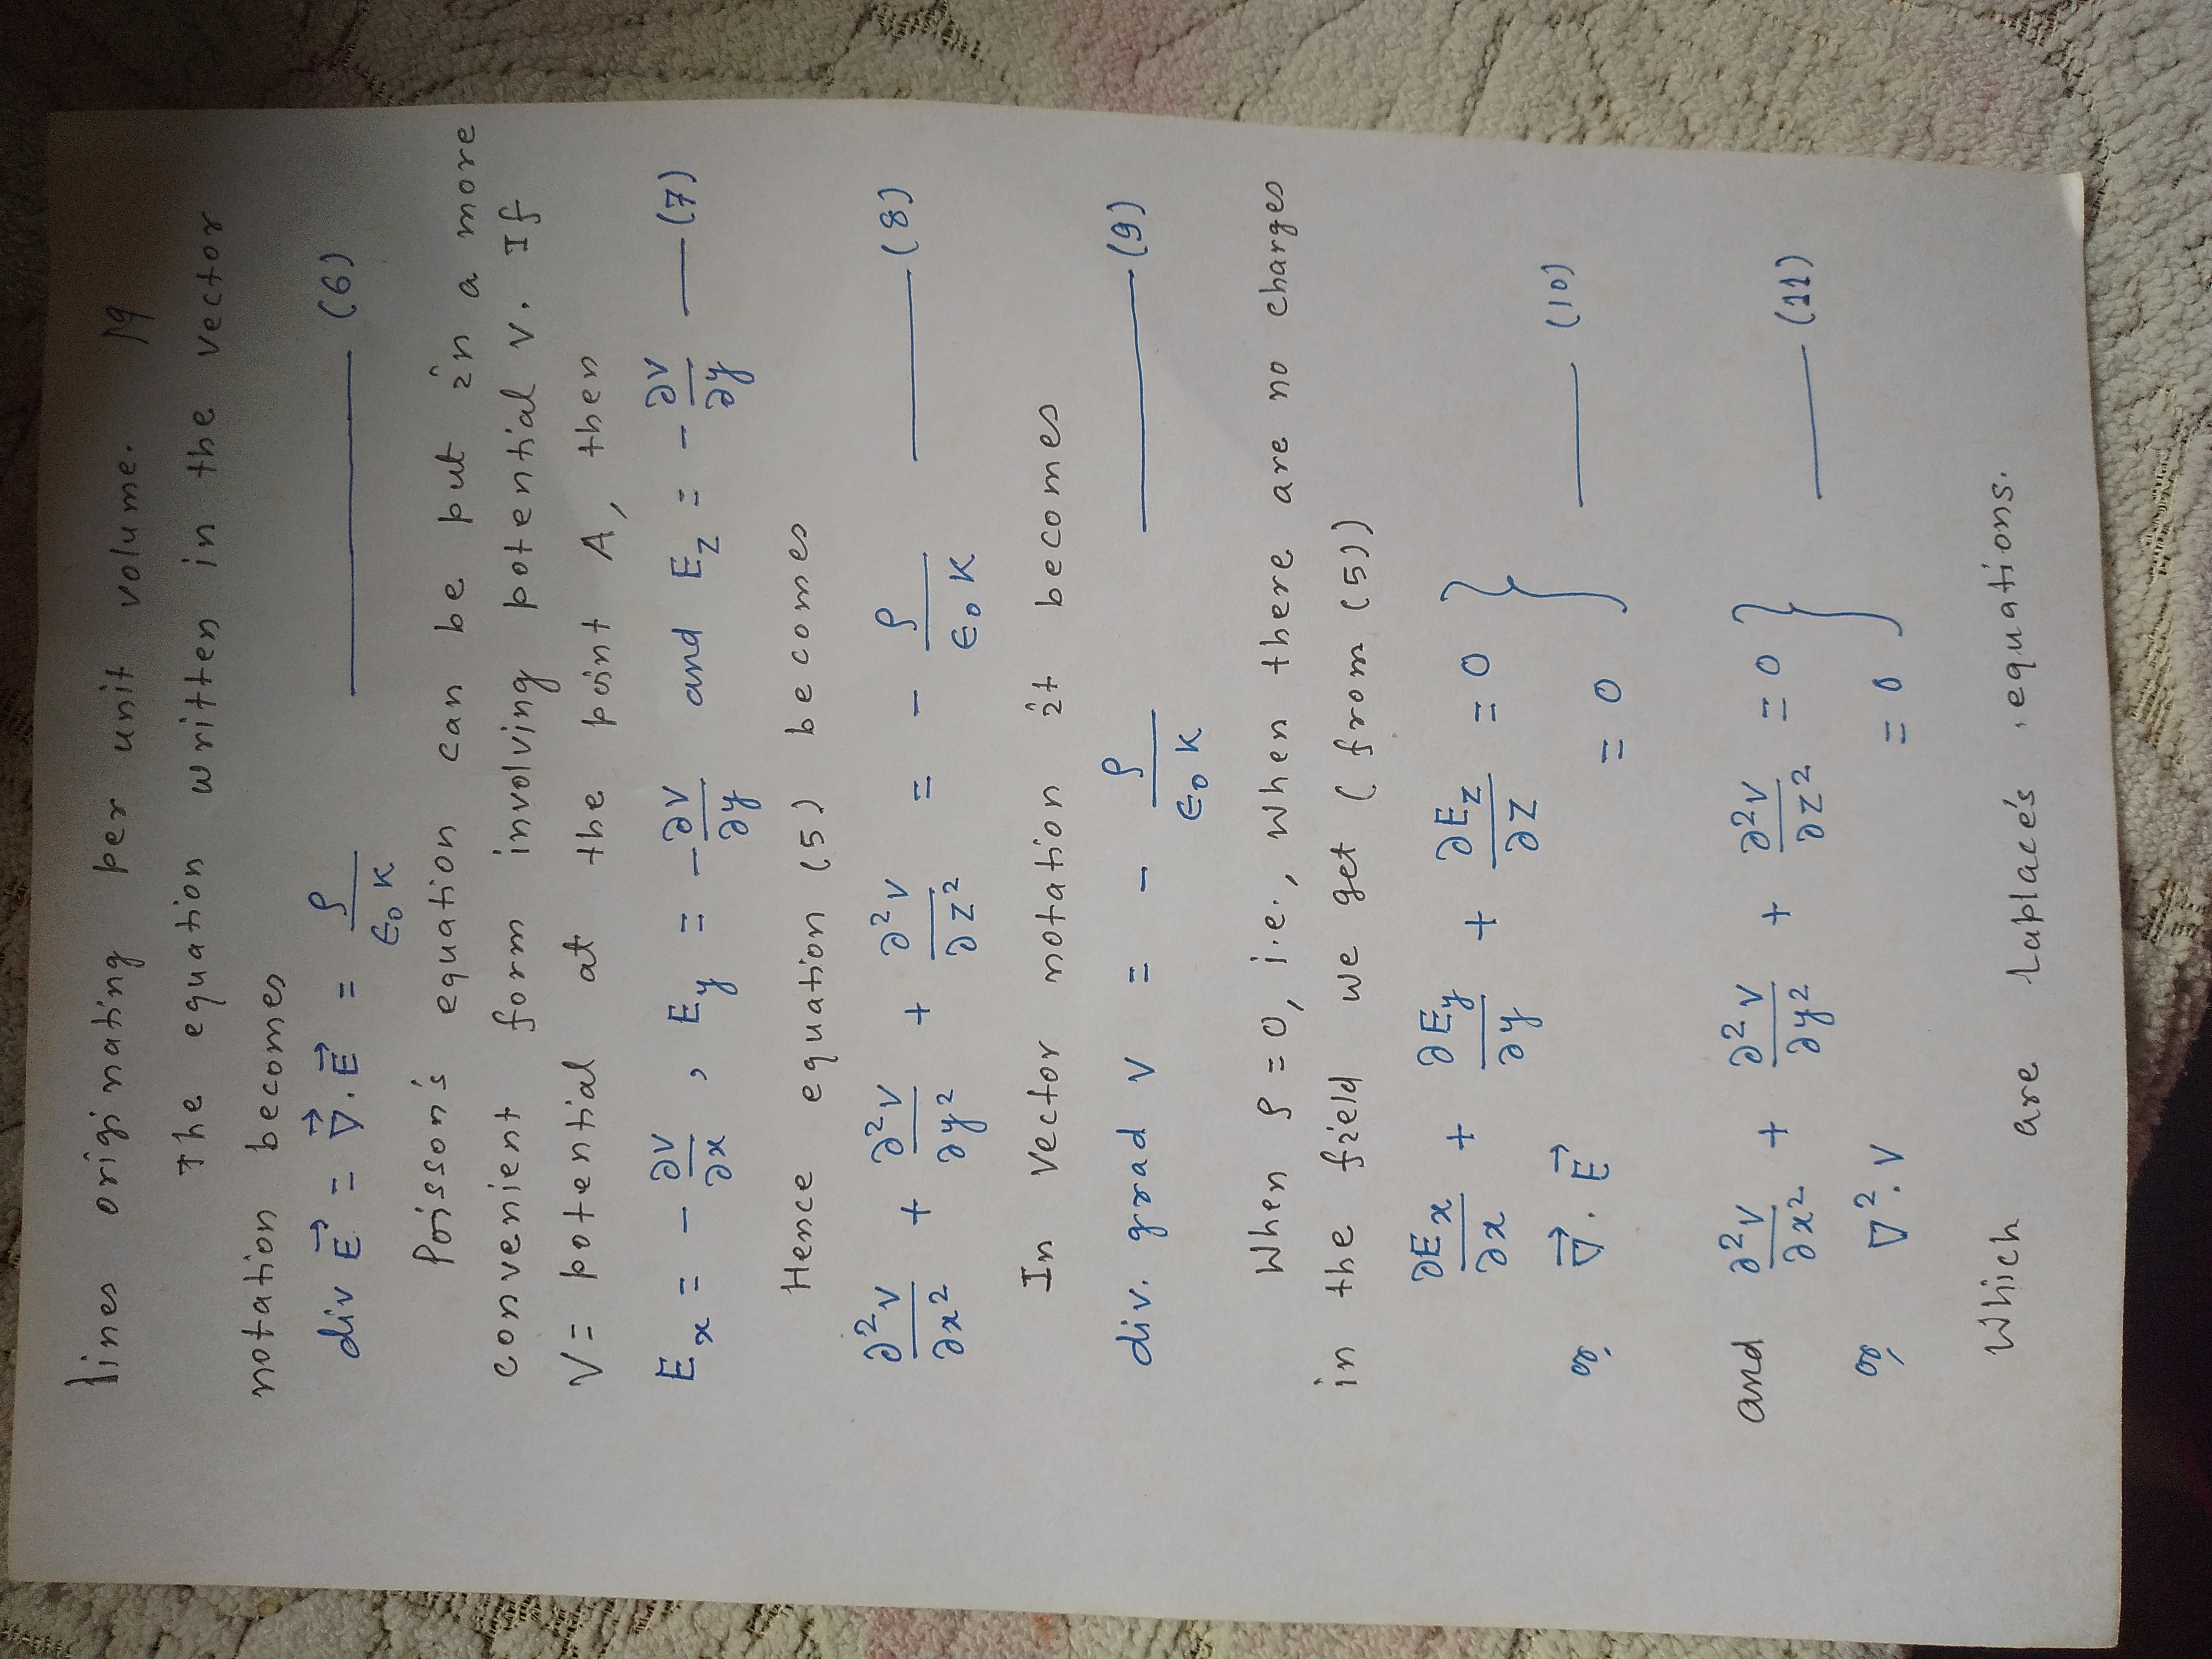 lines originating per unit volume. 19
The equation written in the vector
notation becomes
div E⃗ = ∇⃗.E⃗ = ρ/ϵ₀K —— (6)
Poisson's equation can be put in a more
convenient form involving potential V. If
V = potential at the point A, then
Eₓ = - ∂V/∂x , E_y = - ∂V/∂y and E_z = - ∂V/∂y —— (7)
Hence equation (5) becomes
∂²V/∂x² + ∂²V/∂y² + ∂²V/∂z² = - ρ/ϵ₀K —— (8)
In Vector notation it becomes
div. grad V = - ρ/ϵ₀K —— (9)
When ρ = 0, i.e., when there are no charges
in the field we get (from (5))
∂Eₓ/∂x + ∂E_y/∂y + ∂E_z/∂z = 0
or, ∇⃗.E⃗ = 0 } —— (10)
and ∂²V/∂x² + ∂²V/∂y² + ∂²V/∂z² = 0
or, ∇².V = 0 } —— (11)
Whiich are Laplace's equations.